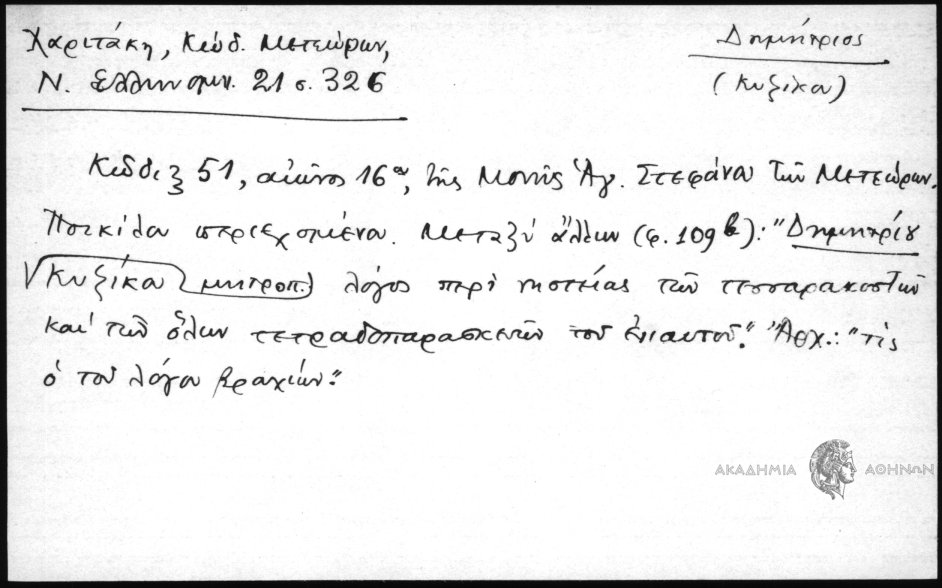 Χαριτάκη, Κώδ. Μετεώρων,
Ν. Ελληνομν. 21 σ. 326
Δημήτριος
(Κυζίκου)
Κώδιξ 51, αἰῶνος 16ου, τῆς Μονῆς Ἁγ. Στεφάνου τῶν Μετεώρων.
Ποικίλου περιεχομένου. Μεταξὺ ἄλλων (φ. 109b): "Δημητρίου
Κυζίκου μητροπ. λόγος περὶ νηστείας τῶν τεσσαρακοστῶν
καὶ τῶν ὅλων τετραδοπαρασκευῶν τοῦ ἐνιαυτοῦ." Ἀρχ.: "τίς
ὁ τοῦ λόγου βραχίων."
ΑΚΑΔΗΜΙΑ ΑΘΗΝΩΝ